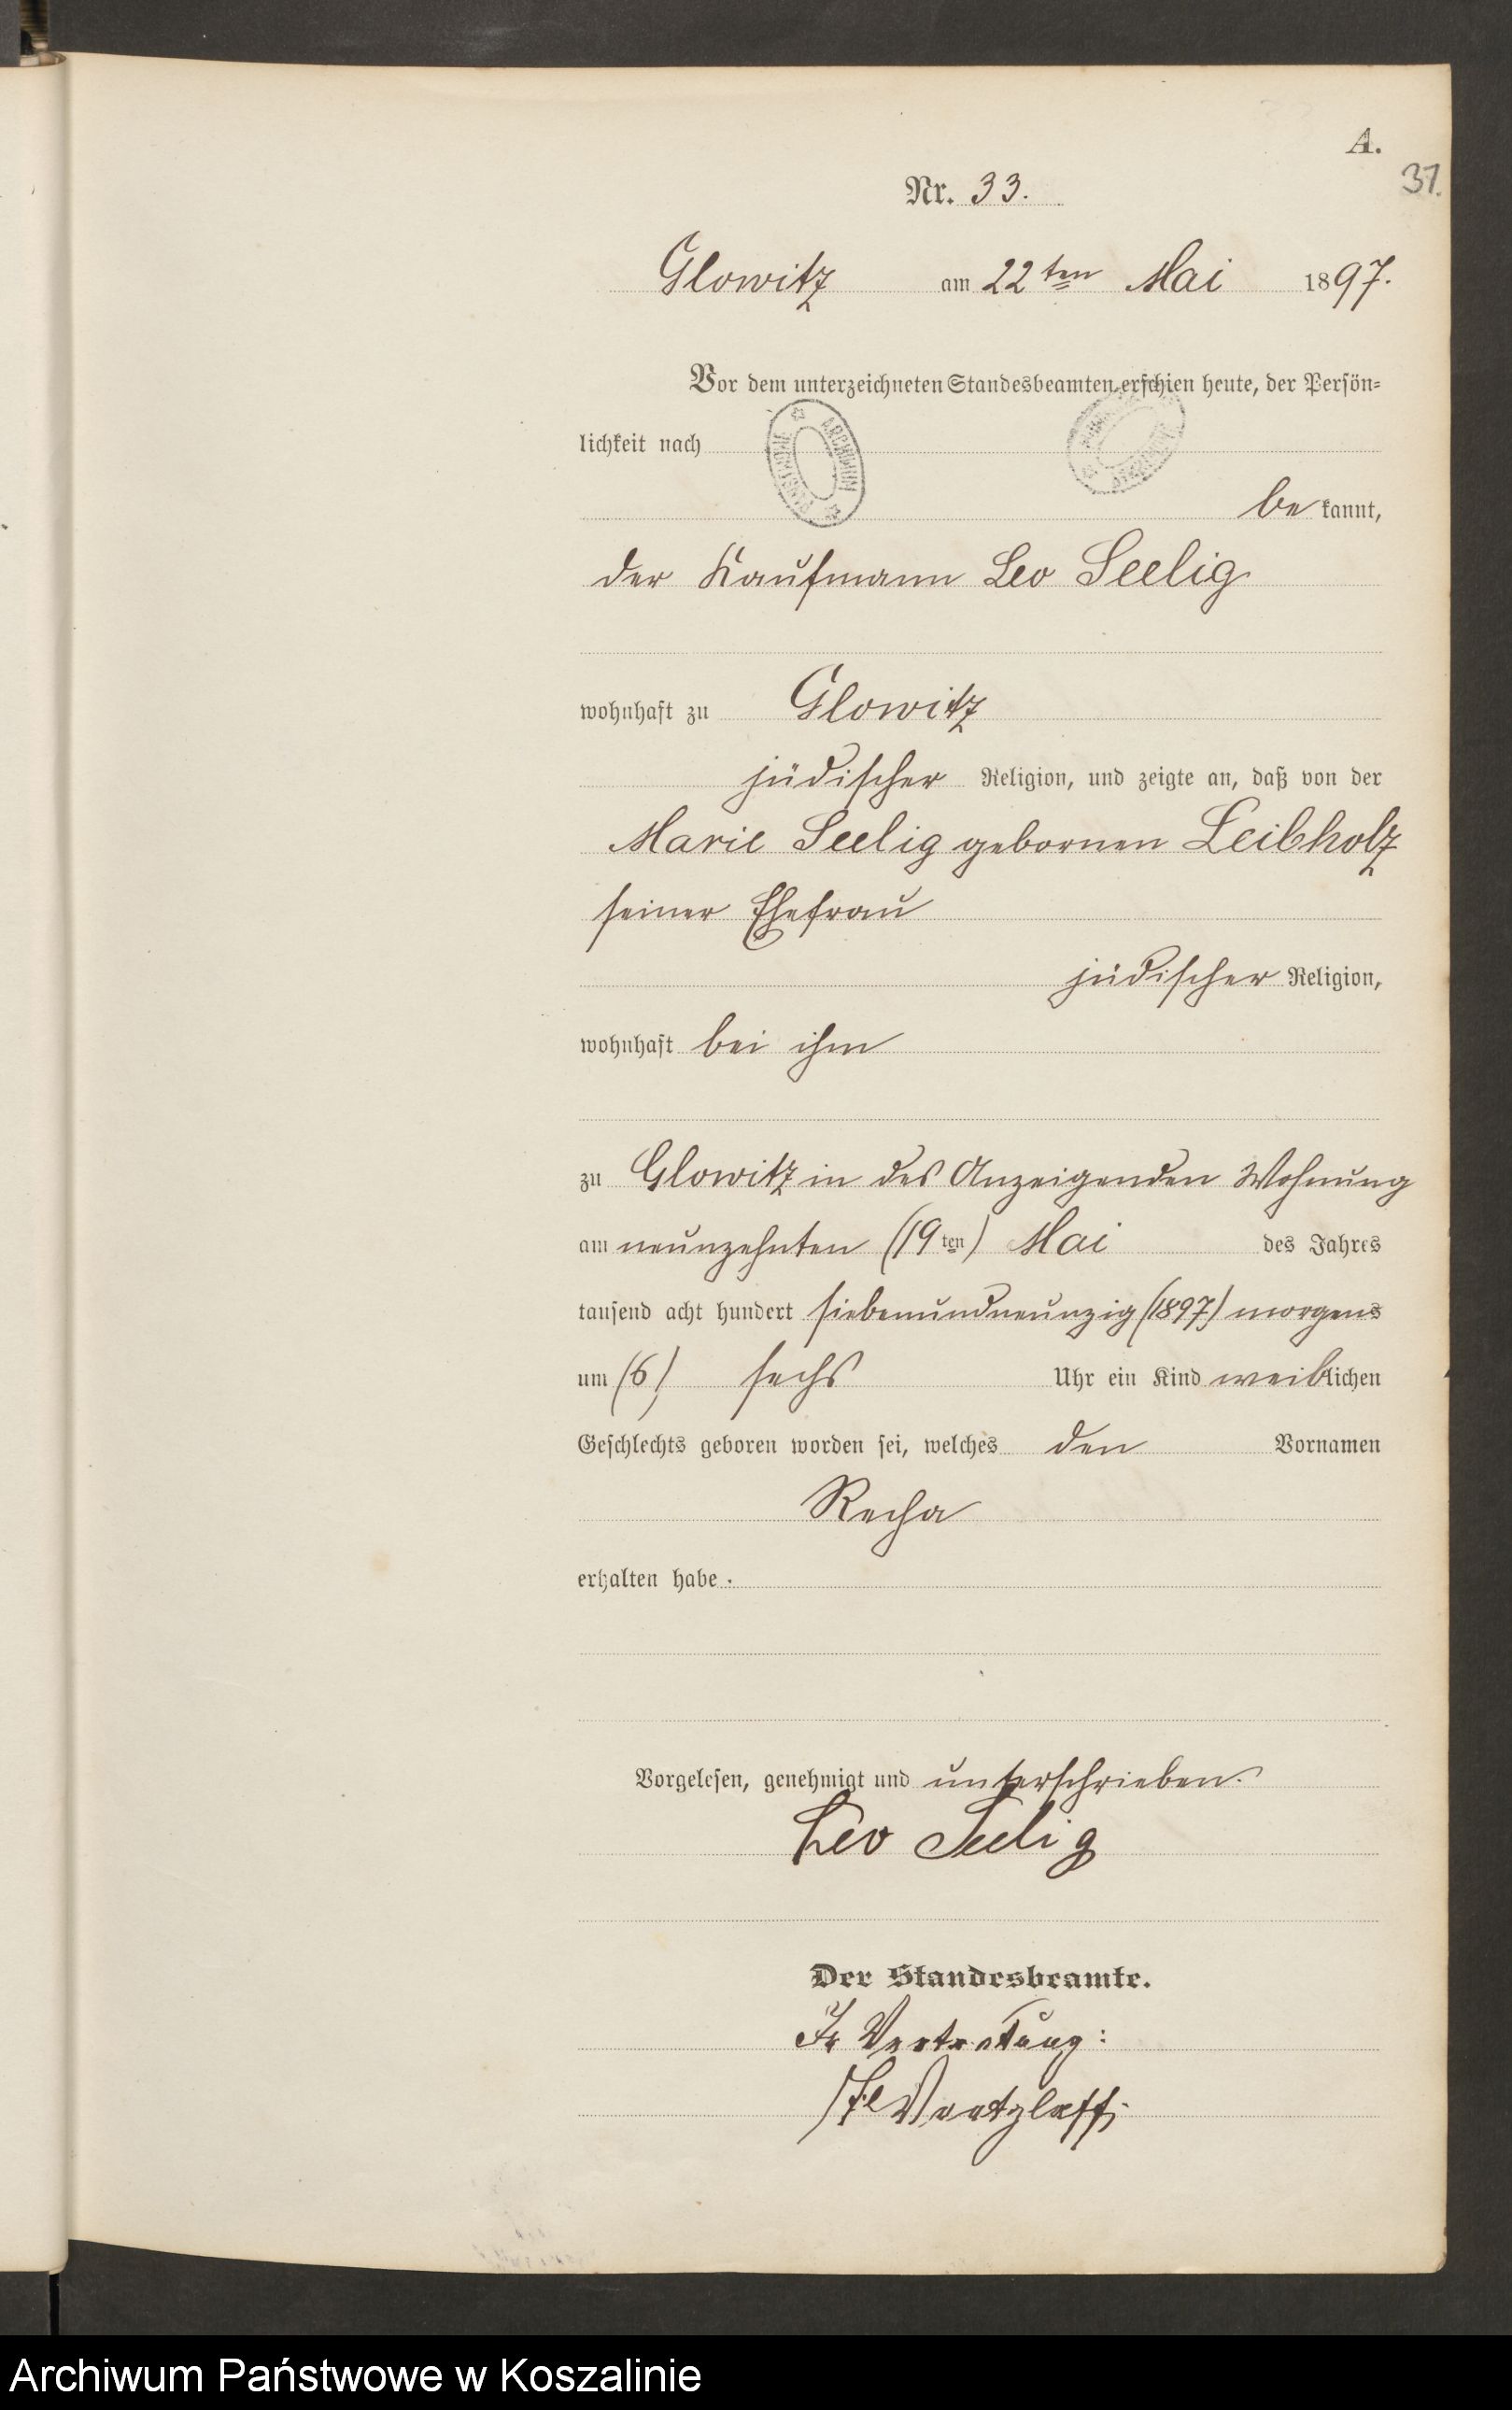 A.
31.
Nr. 33.
Glowitz am 22ten Mai 1897.
Vor dem unterzeichneten Standesbeamten erschien heute, der Persön=
lichkeit nach
ARCHIWUM PAŃSTWOWE
be kannt,
der Kaufmann Leo Seelig
wohnhaft zu Glowitz
jüdischer Religion, und zeigte an, daß von der
Marie Seelig gebornen Leibholz
seiner Ehefrau
jüdischer Religion,
wohnhaft bei ihm
zu Glowitz in des Anzeigenden Wohnung
am neunzehnten (19ten) Mai des Jahres
tausend acht hundert siebenundneunzig (1897) morgens
um (6) sechs Uhr ein Kind weiblichen
Geschlechts geboren worden sei, welches den Vornamen
Recha
erhalten habe.
Vorgelesen, genehmigt und unterschrieben.
Leo Seelig
Der Standesbeamte.
In Vertretung:
Archiwum Państwowe w Koszalinie